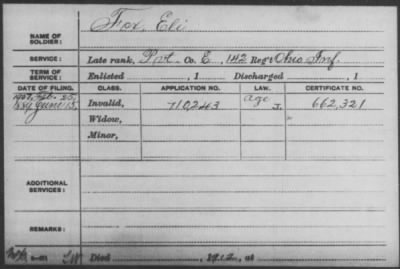 Fox, Eli
NAME OF
SOLDIER:
SERVICE: Late rank, Pvt. Co. E, 142 Reg't Ohio Inf.
TERM OF
SERVICE: Enlisted , 1 Discharged , 1
DATE OF FILING. CLASS. APPLICATION NO. LAW. CERTIFICATE NO.
1907, Feb. 25,
1889 June 15, Invalid, 710243 age J. 662,321
Widow,
Minor,
ADDITIONAL
SERVICES:
REMARKS:
Died , 1912, at